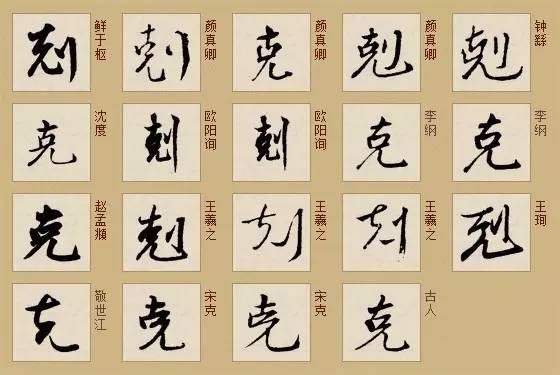 剋 鲜于枢
剋 颜真卿
克 颜真卿
剋 颜真卿
剋 钟繇
克 沈度
剋 欧阳询
剋 欧阳询
克 李纲
克 李纲
克 赵孟頫
剋 王羲之
剋 王羲之
剋 王羲之
剋 王珣
克 敬世江
克 宋克
克 宋克
克 古人